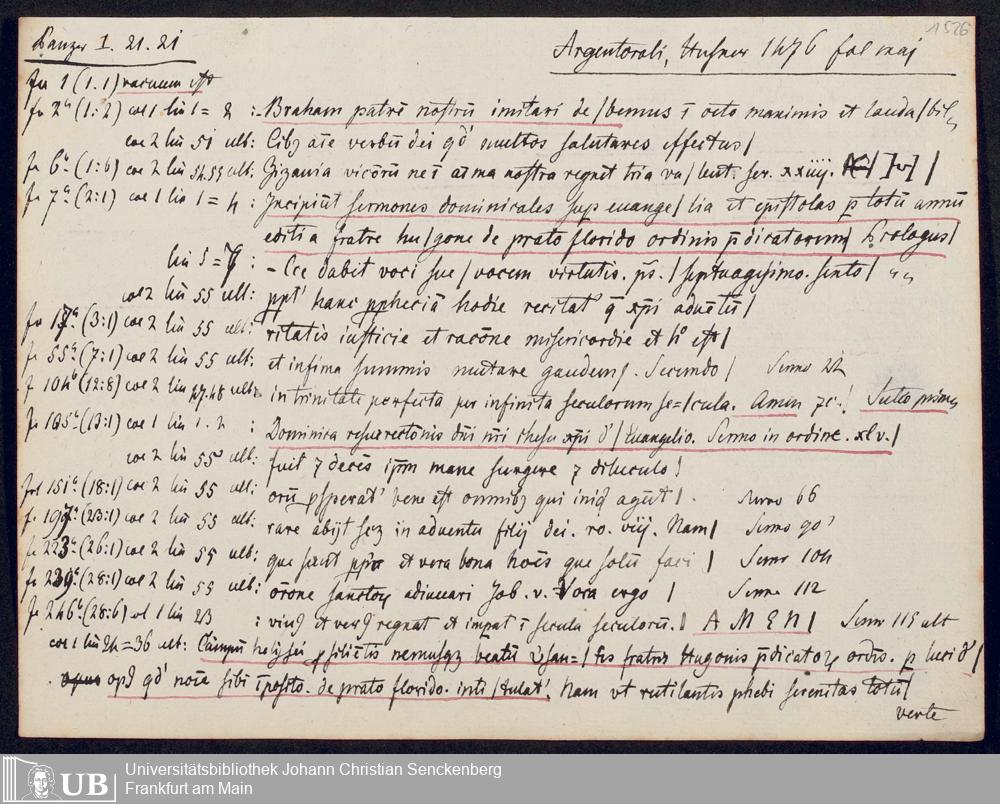 1526
Panzer I. 21. 21 Argentorati, Husner 1476 fol maj
fu 1 (1.1) vacuum est
fu 2a (1:2) col 1 lin 1 = 2 : -Braham patrē nostrū imitari de/bemus ī octo maximis et lauda/bil
col 2 lin 51 ult: Cibz aīe verbū dei qd' multos salutares effectus/
fu 6b (1:6) col 2 lin 54.55 ult: Zizania vicōrū ne ī aīma nostra regnet tria va/lent. ser. xxiiij.
fu 7a (2:1) col 1 lin 1 = 4 : Incipiūt sermones dominicales sup euange/lia et epistolas p totū annū
editi a fratre hu/gone de prato florido ordinis p̄dicatorum/ Prologus/
lin 5 = 7 : -Cce dabit voci sue/vocem virtutis. ps. / septuagesimo. /
col 2 lin 55 ult: ppt' hanc ppheciā hodie recitat' q̄ xp̄i aduētū/
(3:1) col 2 lin 55 ult: ritatis iusticie et racōne misericordie et h° est/
fu 55a (7:1) col 2 lin 55 ult: et infima summis mutare gaudens/. Secundo / Sermo 22
fu 104b (12:8) col 2 lin 47.48 ult: in trinitate perfecta per infinita seculorum se=/cula. Amen 7c./
fu 105a (13:1) col 1 lin 1. 2 : Dominica resurrectōnis dn̄i nr̄i ihesu xp̄i d'/ Euangelio. Sermo in ordine. xlv./
col 2 lin 55 ult: fuit 7 decēs ip̄m mane surgere 7 diluculo/
fol 151a (18:1) col 2 lin 55 ult: orū psperat' bene est omnibz qui iniq agūt/. Sermo 66
(23:1) col 2 lin 55 ult: rare abijt scz in aduentu filij dei. ro. viij. Nam/ Sermo 90
fu 223a (26:1) col 2 lin 55 ult: que sunt et vera bona hoīes que solū faci / Sermo 104
fu 239a (28:1) col 2 lin 55 ult: orōne sanctoz adiuuari Job. v. Voca ergo / Sermo 112
fu 246b (28:6) col 1 lin 23 : viuus et verus regnat et impat ī secula seculorū./ AMEN/ Sermo 115 ult
col 1 lin 24=36 ult: Cāmpū helysei nemusqz beatū Vsan=/tis fratris Hugonis p̄dicatoz ordīs. p
opus qd' noīe sibi īposito. de prato florido. inti/tulat'. Nam vt rutilantis phebi serenitas totū/
verte
UB
Universitätsbibliothek Johann Christian Senckenberg
Frankfurt am Main